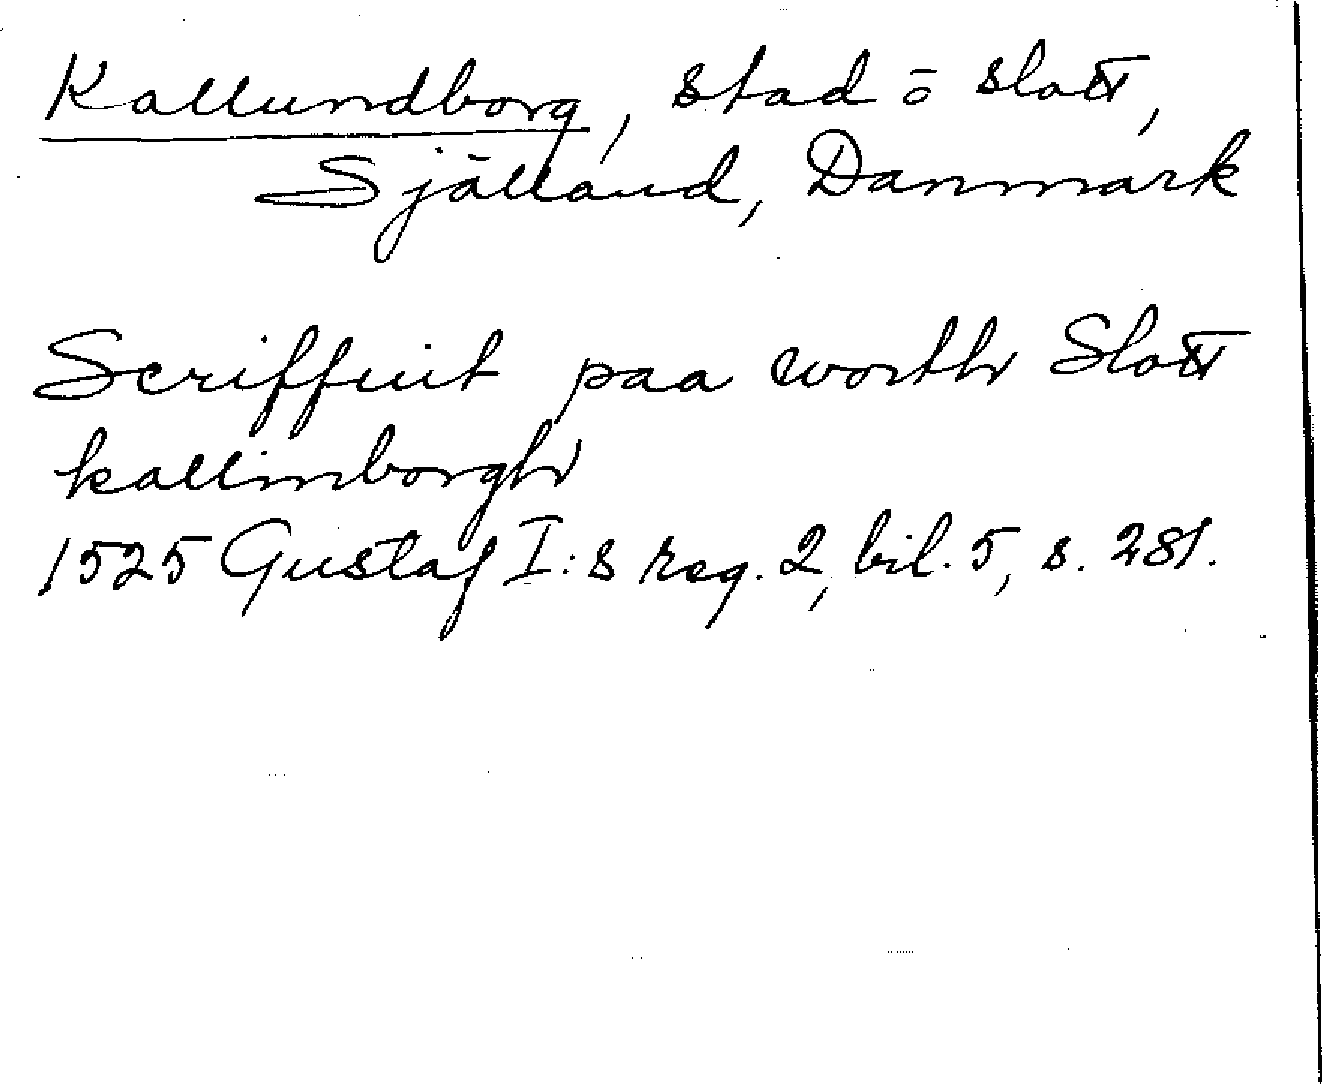 Kallundborg, stad ō slott,
Själland, Danmark
Scriffuit paa worth Slott
kallinborgh
1525 Gustaf I:s reg. 2, bil. 5, s. 281.